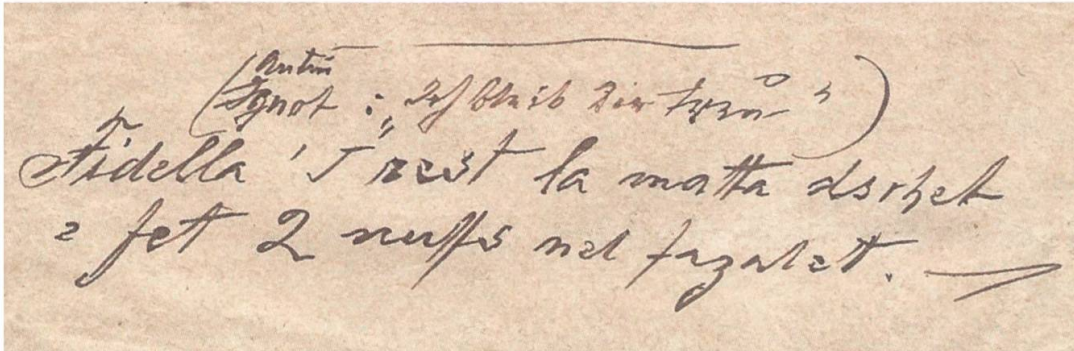 Antin
(Ignot : „Ich bleib Dir treu")
Fidella 'T rest la matta dschet
e fet 2 nuffs nel fazalet.